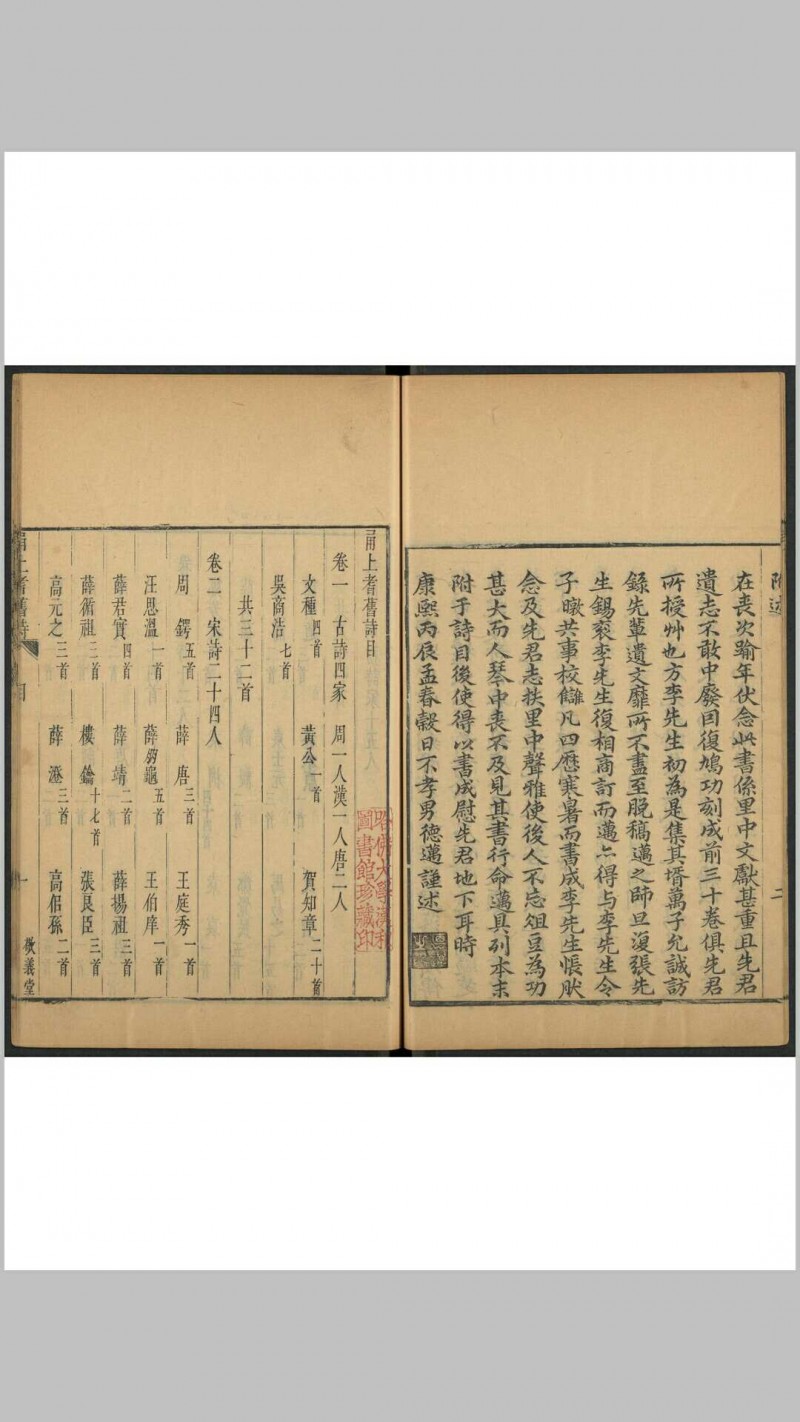 附述
二
在喪次踰年伏念此書係里中文獻甚重且先君
遺志不敢中廢因復鳩功刻成前三十卷俱先君
所授艸也方李先生初為是集其壻萬子允誠訪
錄先輩遺文靡所不盡至脫稿邁之師旦復張先
生錫衮李先生復相商訂而邁亦得与李先生令
子暾共事校讎凡四歷寒暑而書成李先生悵肰
念及先君志扶里中聲雅使後人不忘俎豆為功
甚大而人琴中喪不及見其書行命邁具列本末
附于詩目後使得以書成慰先君地下耳時
康熙丙辰孟春穀日不孝男德邁謹述
甬上耆舊詩目
卷一　古詩四家　周一人漢一人唐二人
文種四首　黃公一首　賀知章二十首
吳商浩七首
共三十二首
卷二　宋詩二十四人
周鍔五首　薛唐三首　王庭秀一首
汪思溫一首　薛朋龜五首　王伯庠一首
薛君實四首　薛靖二首　薛揚祖三首
薛脩祖二首　樓鑰十七首　張良臣三首
高元之三首　薛　三首　高似孫二首
甬上耆舊詩　目　一　敬義堂
哈佛大學漢和
圖書館珍藏印